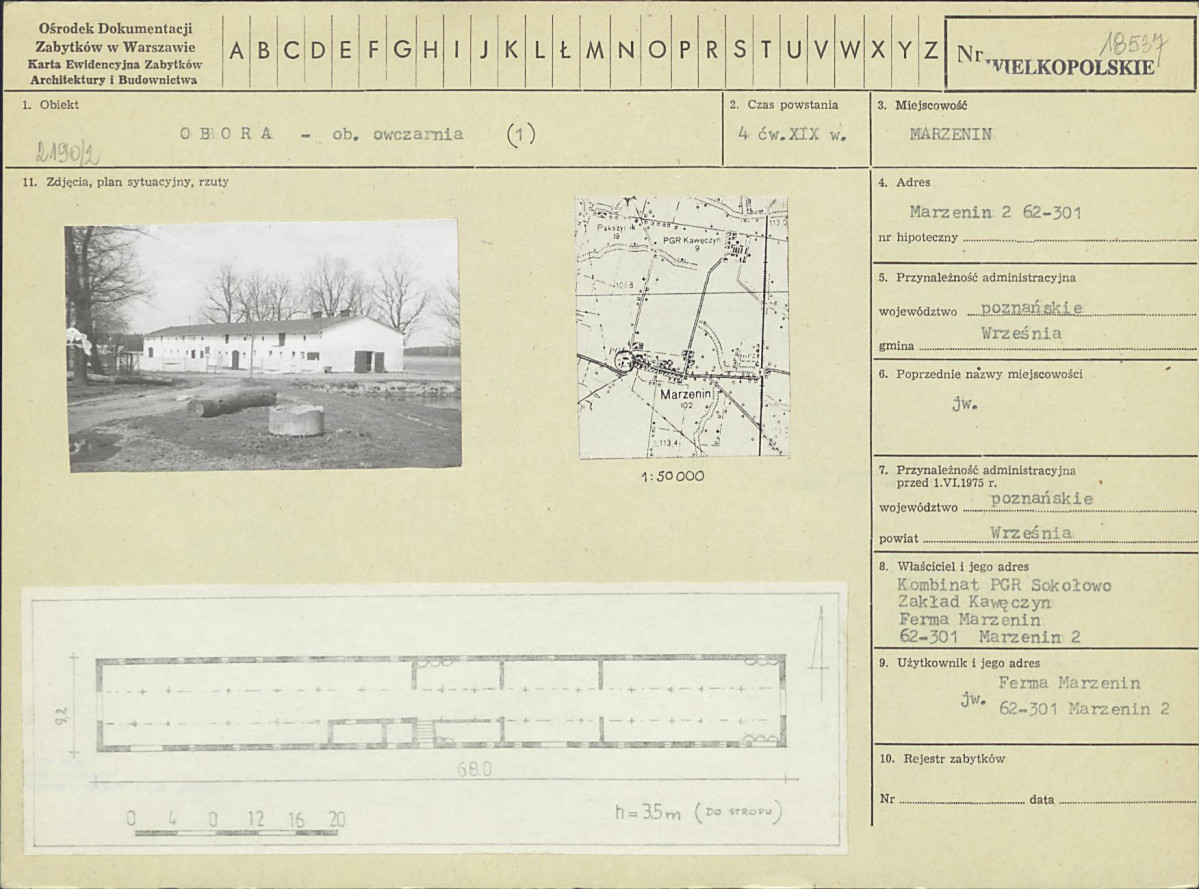 Ośrodek Dokumentacji
Zabytków w Warszawie
Karta Ewidencyjna Zabytków
Architektury i Budownictwa
A B C D E F G H I J K L Ł M N O P R S T U V W X Y Z
Nr 18537
WIELKOPOLSKIE
1. Obiekt
OBORA - ob. owczarnia (1)
2190/2
2. Czas powstania
4 ćw.XIX w.
3. Miejscowość
MARZENIN
11. Zdjęcia, plan sytuacyjny, rzuty
PGR Kawęczyn
9
19
Marzenin
102
113,4
1:50 000
9,2
68.0
0 4 0 12 16 20
h = 3.5m (DO STROPU)
4. Adres
Marzenin 2 62-301
nr hipoteczny
5. Przynależność administracyjna
województwo poznańskie
gmina Września
6. Poprzednie nazwy miejscowości
jw.
7. Przynależność administracyjna
przed 1.VI.1975 r.
województwo poznańskie
powiat Września
8. Właściciel i jego adres
Kombinat PGR Sokołowo
Zakład Kawęczyn
Ferma Marzenin
62-301 Marzenin 2
9. Użytkownik i jego adres
jw. Ferma Marzenin
62-301 Marzenin 2
10. Rejestr zabytków
Nr data